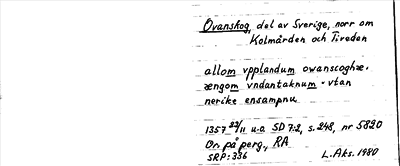 Ovanskog, del av Sverige, norr om
Kolmården och Tiveden
allom vpplandum owanscoghæ.
ængom vndantaknum . vtan
nerike ensampnu
1357 23/11 u.o. SD 7:2, s. 248, nr 5820
Or. på perg., RA
SRP: 336 L. Aks. 1980